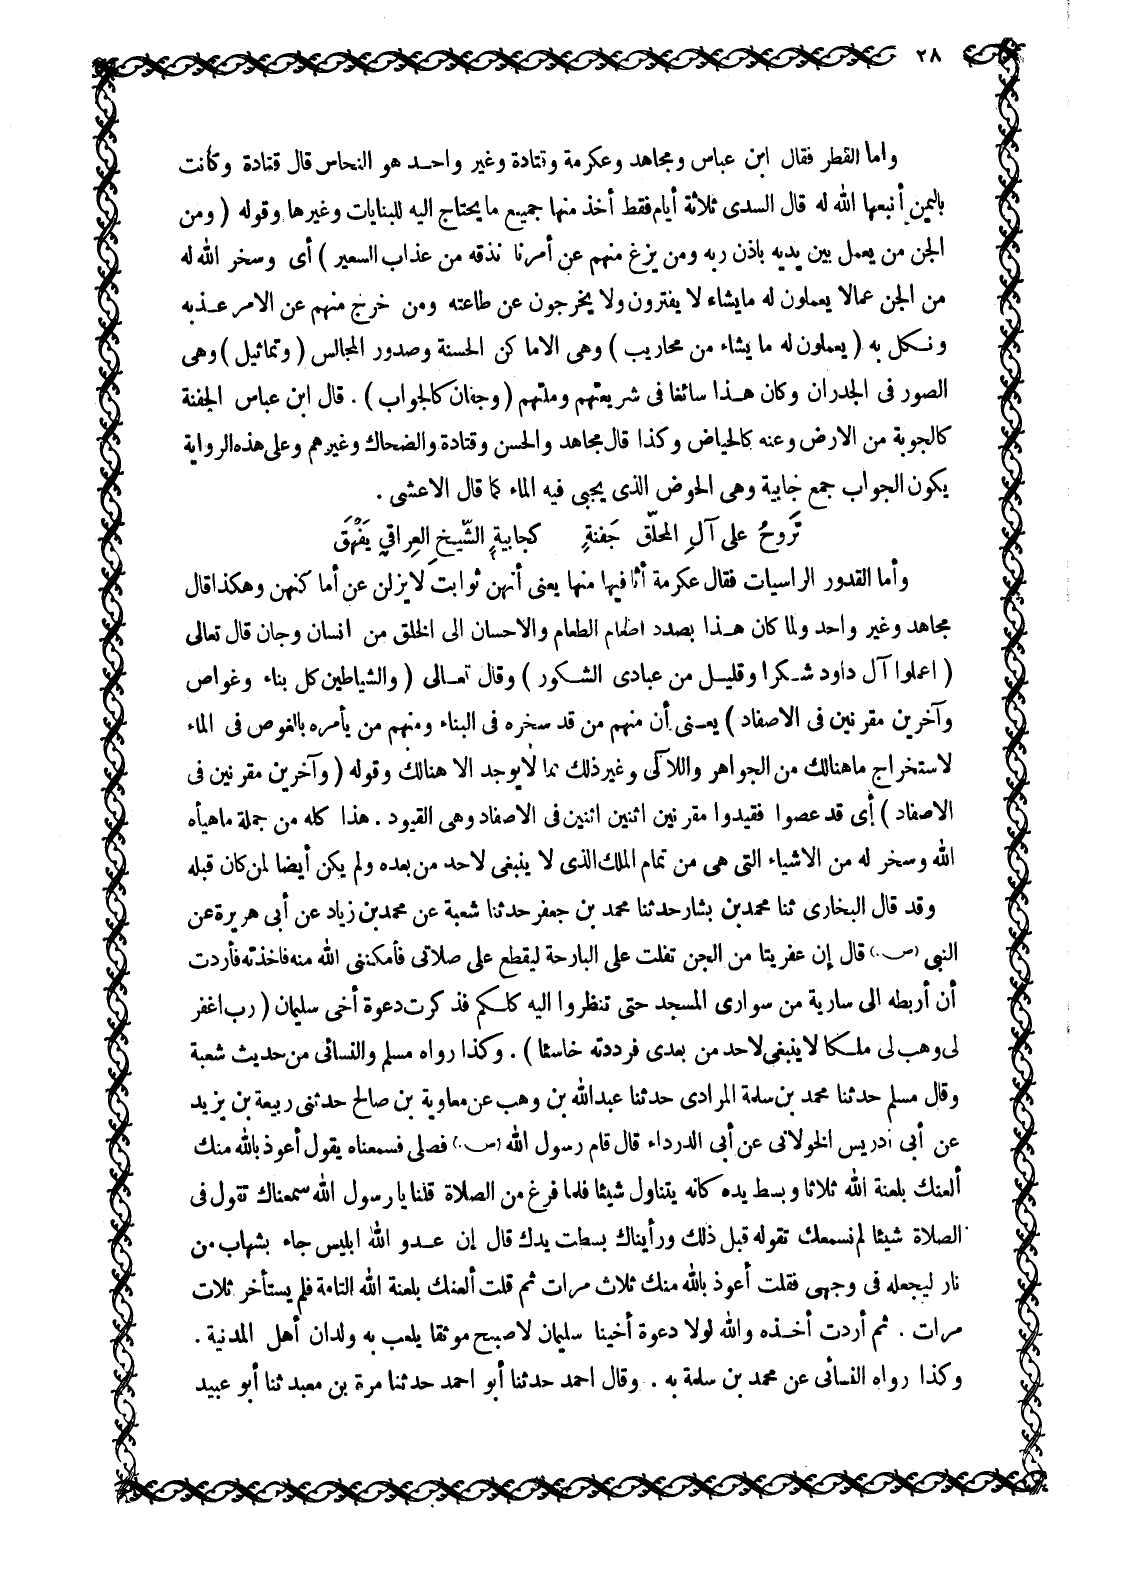 ٢٨
واما القطر فقال ابن عباس ومجاهد وعكرمة وقتادة وغير واحد هو النحاس قال قتادة وكانت
باليمن أنبعها الله له قال السدى ثلاثة أيام فقط أخذ منها جميع ما يحتاج اليه للبنايات وغيرها وقوله ( ومن
الجن من يعمل بين يديه باذن ربه ومن يزغ منهم عن أمرنا نذقه من عذاب السعير ) أى وسخر الله له
من الجن عمالا يعملون له ما يشاء لا يفترون ولا يخرجون عن طاعته ومن خرج منهم عن الامر عذبه
ونكل به ( يعملون له ما يشاء من محاريب ) وهى الاماكن الحسنة وصدور المجالس ( وتماثيل ) وهى
الصور فى الجدران وكان هذا سائغا فى شريعتهم وملتهم ( وجفان كالجواب ) . قال ابن عباس الجفنة
كالجوبة من الارض وعنه كالحياض وكذا قال مجاهد والحسن وقتادة والضحاك وغيرهم وعلى هذه الرواية
يكون الجواب جمع جابية وهى الحوض الذى يجبى فيه الماء كما قال الاعشى .
تَروحُ على آلِ المحلّق جَفنةٍ كجابيةِ الشّيخِ العِراقي يَفْهَقَ
وأما القدور الراسيات فقال عكرمة أثافيها منها يعنى أنهن ثوابت لا يزلن عن أماكنهن وهكذا قال
مجاهد وغير واحد ولما كان هذا بصدد اطعام الطعام والاحسان الى الخلق من انسان وجان قال تعالى
( اعملوا آل داود شكرا وقليل من عبادى الشكور ) وقال تعالى ( والشياطين كل بناء وغواص
وآخرين مقرنين فى الاصفاد ) يعنى أن منهم من قد سخره فى البناء ومنهم من يأمره بالغوص فى الماء
لاستخراج ما هنالك من الجواهر واللآلى وغير ذلك مما لا يوجد الا هنالك وقوله ( وآخرين مقرنين فى
الاصفاد ) أى قد عصوا فقيدوا مقرنين اثنين اثنين فى الاصفاد وهى القيود . هذا كله من جملة ما هيأه
الله وسخر له من الاشياء التى هى من تمام الملك الذى لا ينبغى لاحد من بعده ولم يكن أيضا لمن كان قبله
وقد قال البخارى ثنا محمد بن بشار حدثنا محمد بن جعفر حدثنا شعبة عن محمد بن زياد عن أبى هريرة عن
النبى (ص.) قال إن عفريتا من الجن تفلت على البارحة ليقطع على صلاتى فأمكننى الله منه فاخذته فأردت
أن أربطه الى سارية من سوارى المسجد حتى تنظروا اليه كلكم فذكرت دعوة أخى سليمان ( رب اغفر
لى وهب لى ملكا لا ينبغى لاحد من بعدى فرددته خاسئا ) . وكذا رواه مسلم والنسائى من حديث شعبة
وقال مسلم حدثنا محمد بن سلمة المرادى حدثنا عبدالله بن وهب عن معاوية بن صالح حدثنى ربيعة بن يزيد
عن أبى أدريس الخولانى عن أبى الدرداء قال قام رسول الله (ص.) فصلى فسمعناه يقول أعوذ بالله منك
ألعنك بلعنة الله ثلاثا وبسط يده كانه يتناول شيئا فلما فرغ من الصلاة قلنا يا رسول الله سمعناك تقول فى
الصلاة شيئا لم نسمعك تقوله قبل ذلك ورأيناك بسطت يدك قال إن عدو الله ابليس جاء بشهاب من
نار ليجعله فى وجهى فقلت أعوذ بالله منك ثلاث مرات ثم قلت ألعنك بلعنة الله التامة فلم يستأخر ثلاث
مرات . ثم أردت أخذه والله لولا دعوة أخينا سليمان لاصبح موثقا يلعب به ولدان أهل المدنية .
وكذا رواه النسائى عن محمد بن سلمة به . وقال احمد حدثنا أبو احمد حدثنا مرة بن معبد ثنا أبو عبيد